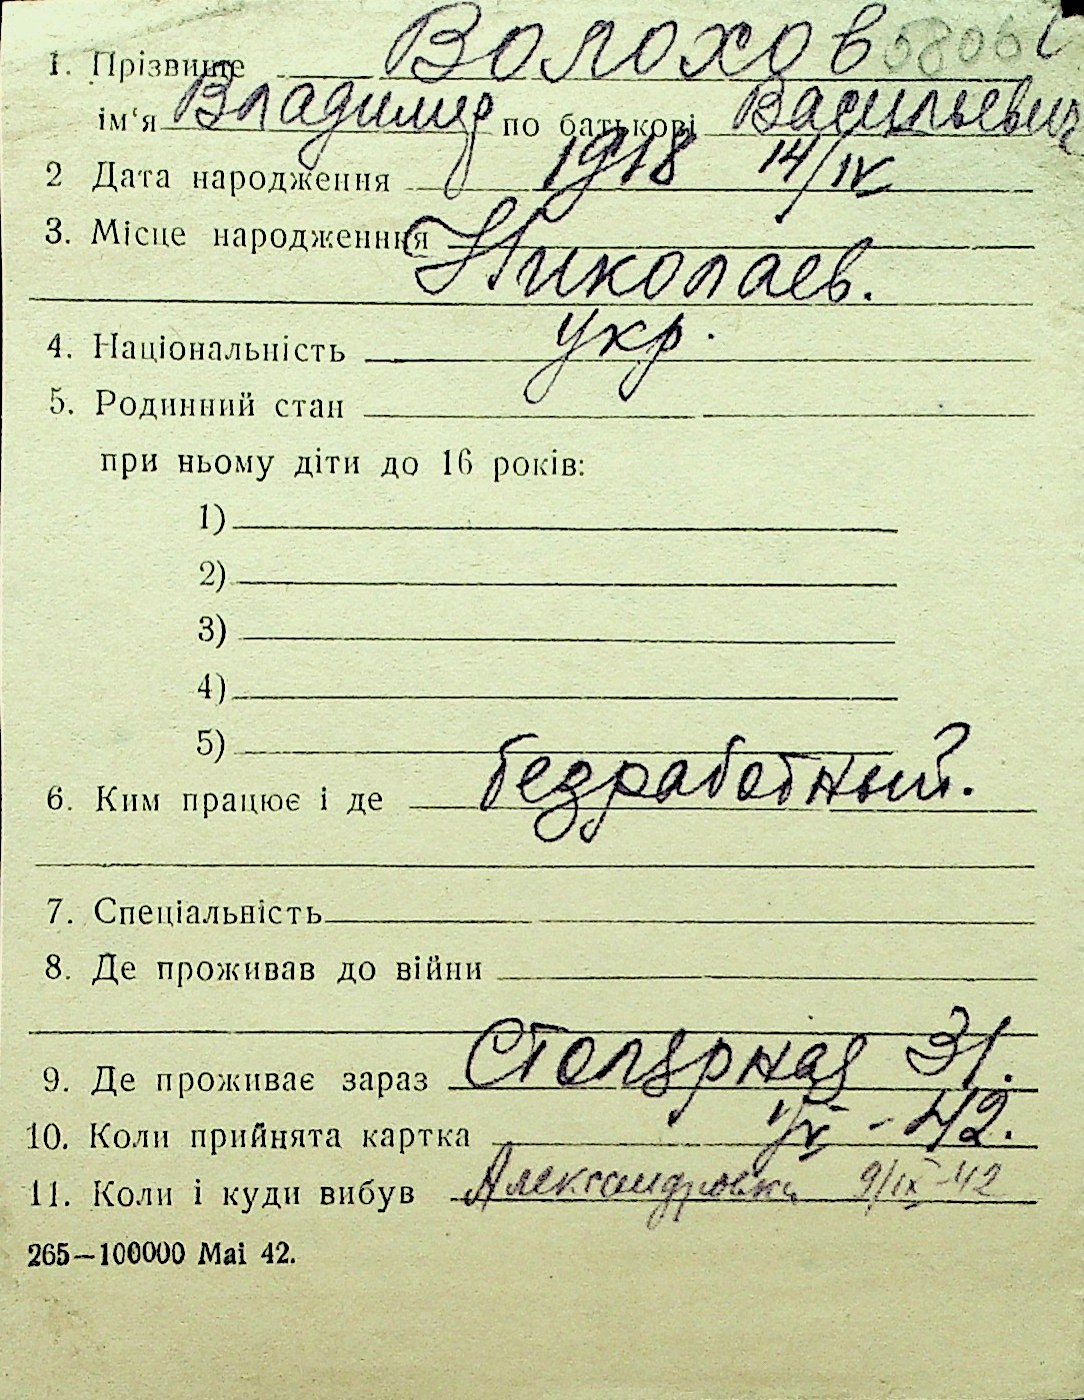 1. Прізвище Волохов
ім‘я Владимир по батькові Васильевич
2 Дата народження 1918 14/IV
3. Місце народженння
Николаев.
4. Національність укр.
5. Родинний стан
при ньому діти до 16 років:
1)
2)
3)
4)
5)
6. Ким працює і де безработный.
7. Спеціальність
8. Де проживав до війни
9. Де проживає зараз Столярная 31.
10. Коли прийнята картка - 42.
11. Коли і куди вибув Александровка 9/IX-42
265—100000 Mai 42.